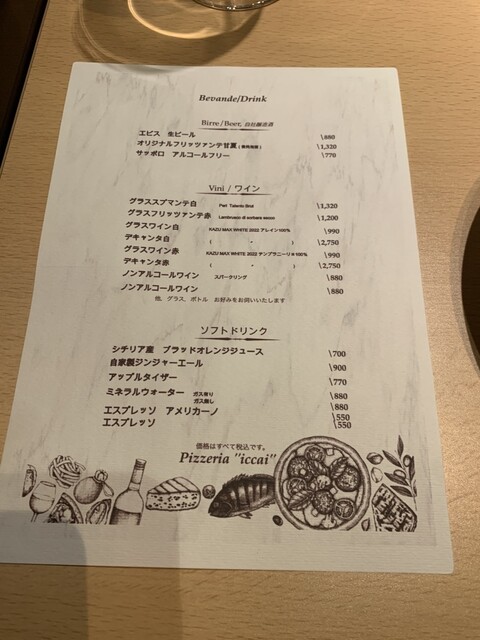 Bevande/Drink
Birre/Beer, 自社醸造酒
エビス　生ビール \880
オリジナルフリッツァンテ甘夏 \1,320
サッポロ　アルコールフリー \770
Vini / ワイン
グラススプマンテ白 Peri Talento Brut \1,320
グラスフリッツァンテ赤 Lambrusco di sorbara secco \1,200
グラスワイン白 KAZU MAX WHITE 2022 アレイン100% \990
デキャンタ白 ( " ) \2,750
グラスワイン赤 KAZU MAX WHITE 2022 テンプラニーリョ100% \990
デキャンタ赤 ( " ) \2,750
ノンアルコールワイン スパークリング \880
ノンアルコールワイン \880
他、グラス、ボトル　お好みをお伺いいたします
ソフトドリンク
シチリア産　ブラッドオレンジジュース \700
自家製ジンジャーエール \900
アップルタイザー \770
ミネラルウォーター ガス有り \880
ガス無し \880
エスプレッソ　アメリカーノ \550
エスプレッソ \550
価格はすべて税込です。
Pizzeria "iccai"